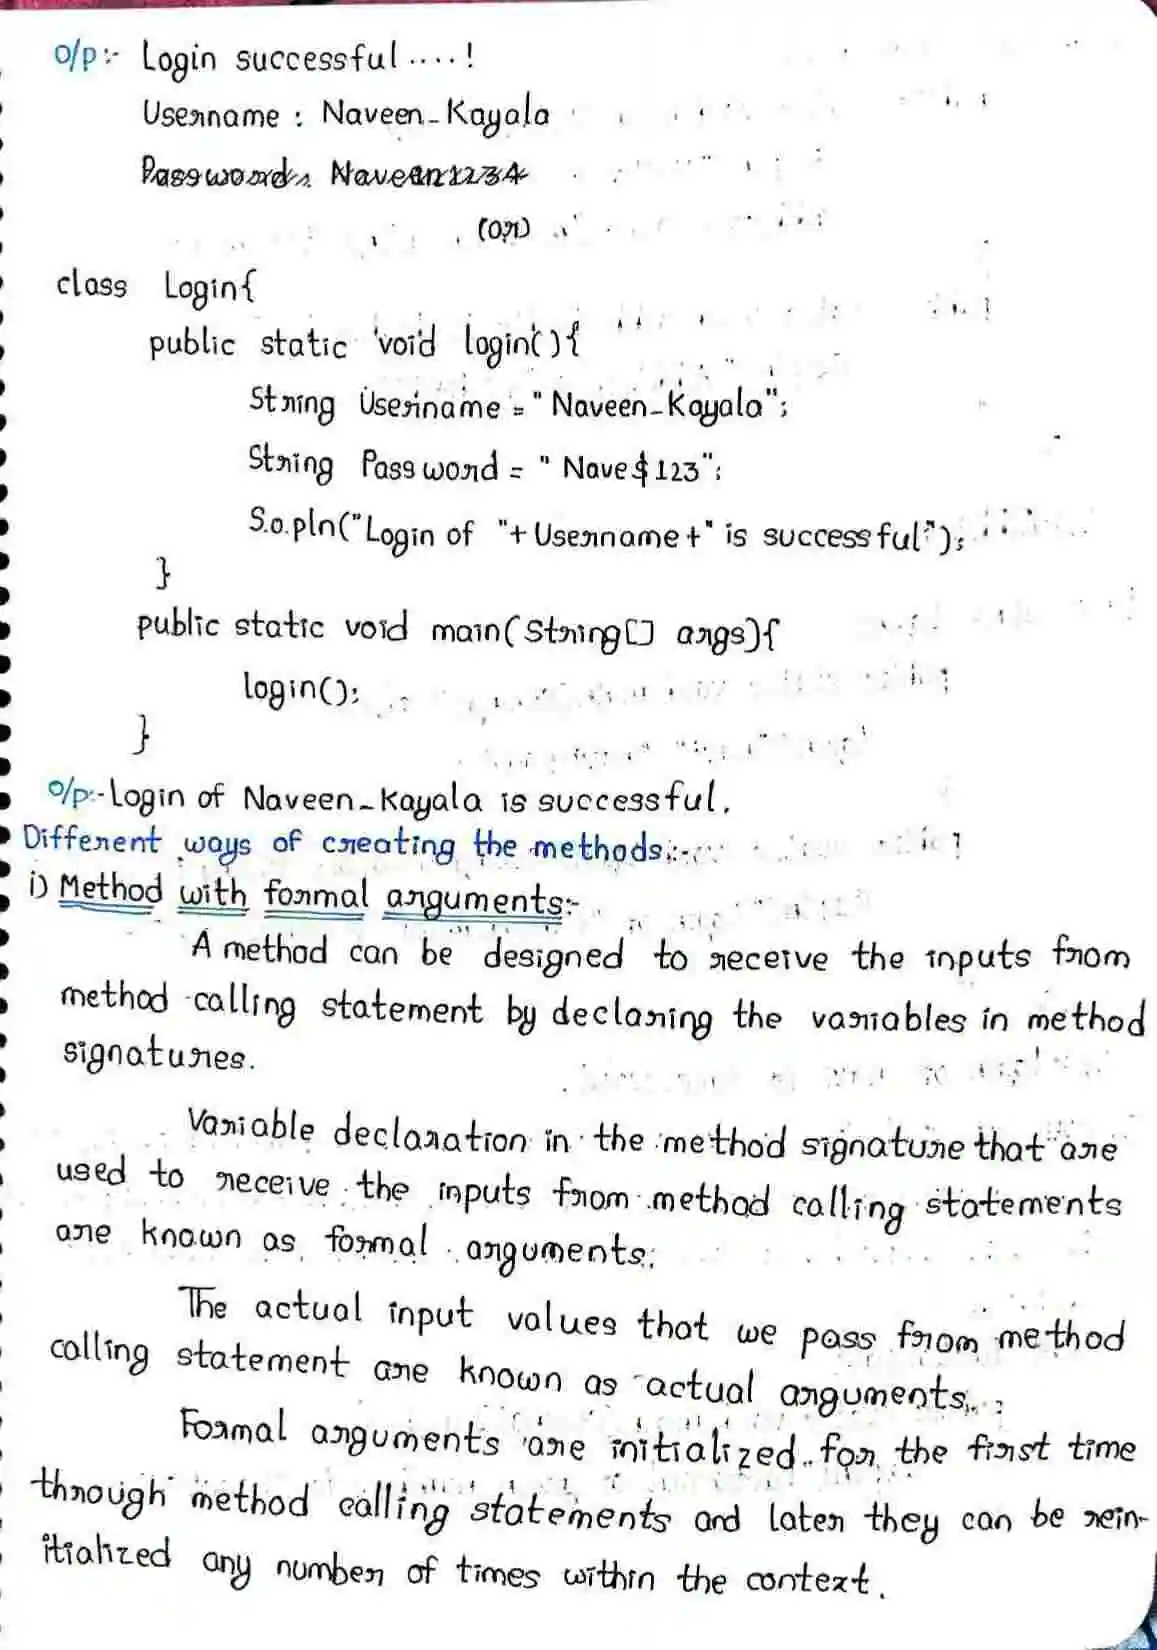 o/p:- Login successful ....!
Username : Naveen-Kayala
Password : Naveen1234
(or)
class Login{
public static void login(){
String Username = "Naveen-Kayala";
String Password = "Nave$123";
S.o.pln("Login of "+Username+" is successful");
}
public static void main(String[] args){
login();
}
o/p:- Login of Naveen-Kayala is successful.
Different ways of creating the methods:-
i) Method with formal arguments:-
A method can be designed to receive the inputs from
method calling statement by declaring the variables in method
signatures.
Variable declaration in the method signature that are
used to receive the inputs from method calling statements
are known as formal arguments.
The actual input values that we pass from method
calling statement are known as actual arguments.
Formal arguments are initialized for the first time
through method calling statements and later they can be rein-
itialized any number of times within the context.